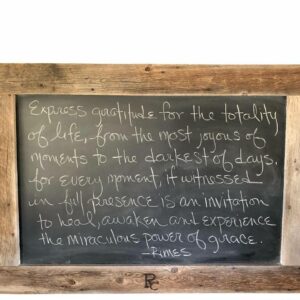 Express gratitude for the totality
of life, from the most joyous of
moments to the darkest of days.
for every moment, if witnessed
in full presence is an invitation
to heal, awaken and experience
the miraculous power of grace.
-Rimes